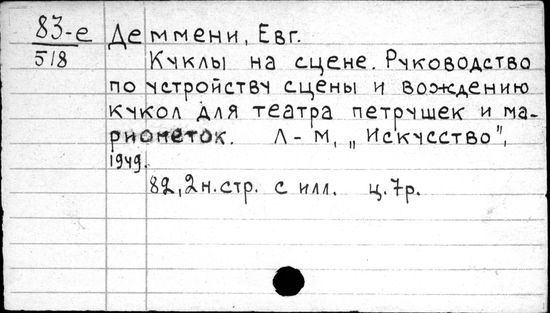 83-е Деммени, Евг.
5/8 Куклы на сцене. Руководство
по устройству сцены и вождению
кукол для театра петрушек и ма-
рионеток. Л-М, „Искусство",
1949.
82, 2 н. стр. с илл. ц. 7р.